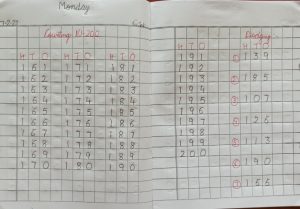 Monday
H T O H T O H T O
1 6 1 1 7 1 1 8 1
1 6 2 1 7 2 1 8 2
1 6 3 1 7 3 1 8 3
1 6 4 1 7 4 1 8 4
1 6 5 1 7 5 1 8 5
1 6 6 1 7 6 1 8 6
1 6 7 1 7 7 1 8 7
1 6 8 1 7 8 1 8 8
1 6 9 1 7 9 1 8 9
1 7 0 1 8 0 1 9 0
H T O
1 9 1
1 9 2
1 9 3
1 9 4
1 9 5
1 9 6
1 9 7
1 9 8
1 9 9
2 0 0
H T O
① 1 3 9
② 1 8 5
③ 1 0 7
④ 1 2 6
⑤ 1 1 3
⑥ 1 9 0
⑦ 1 5 5